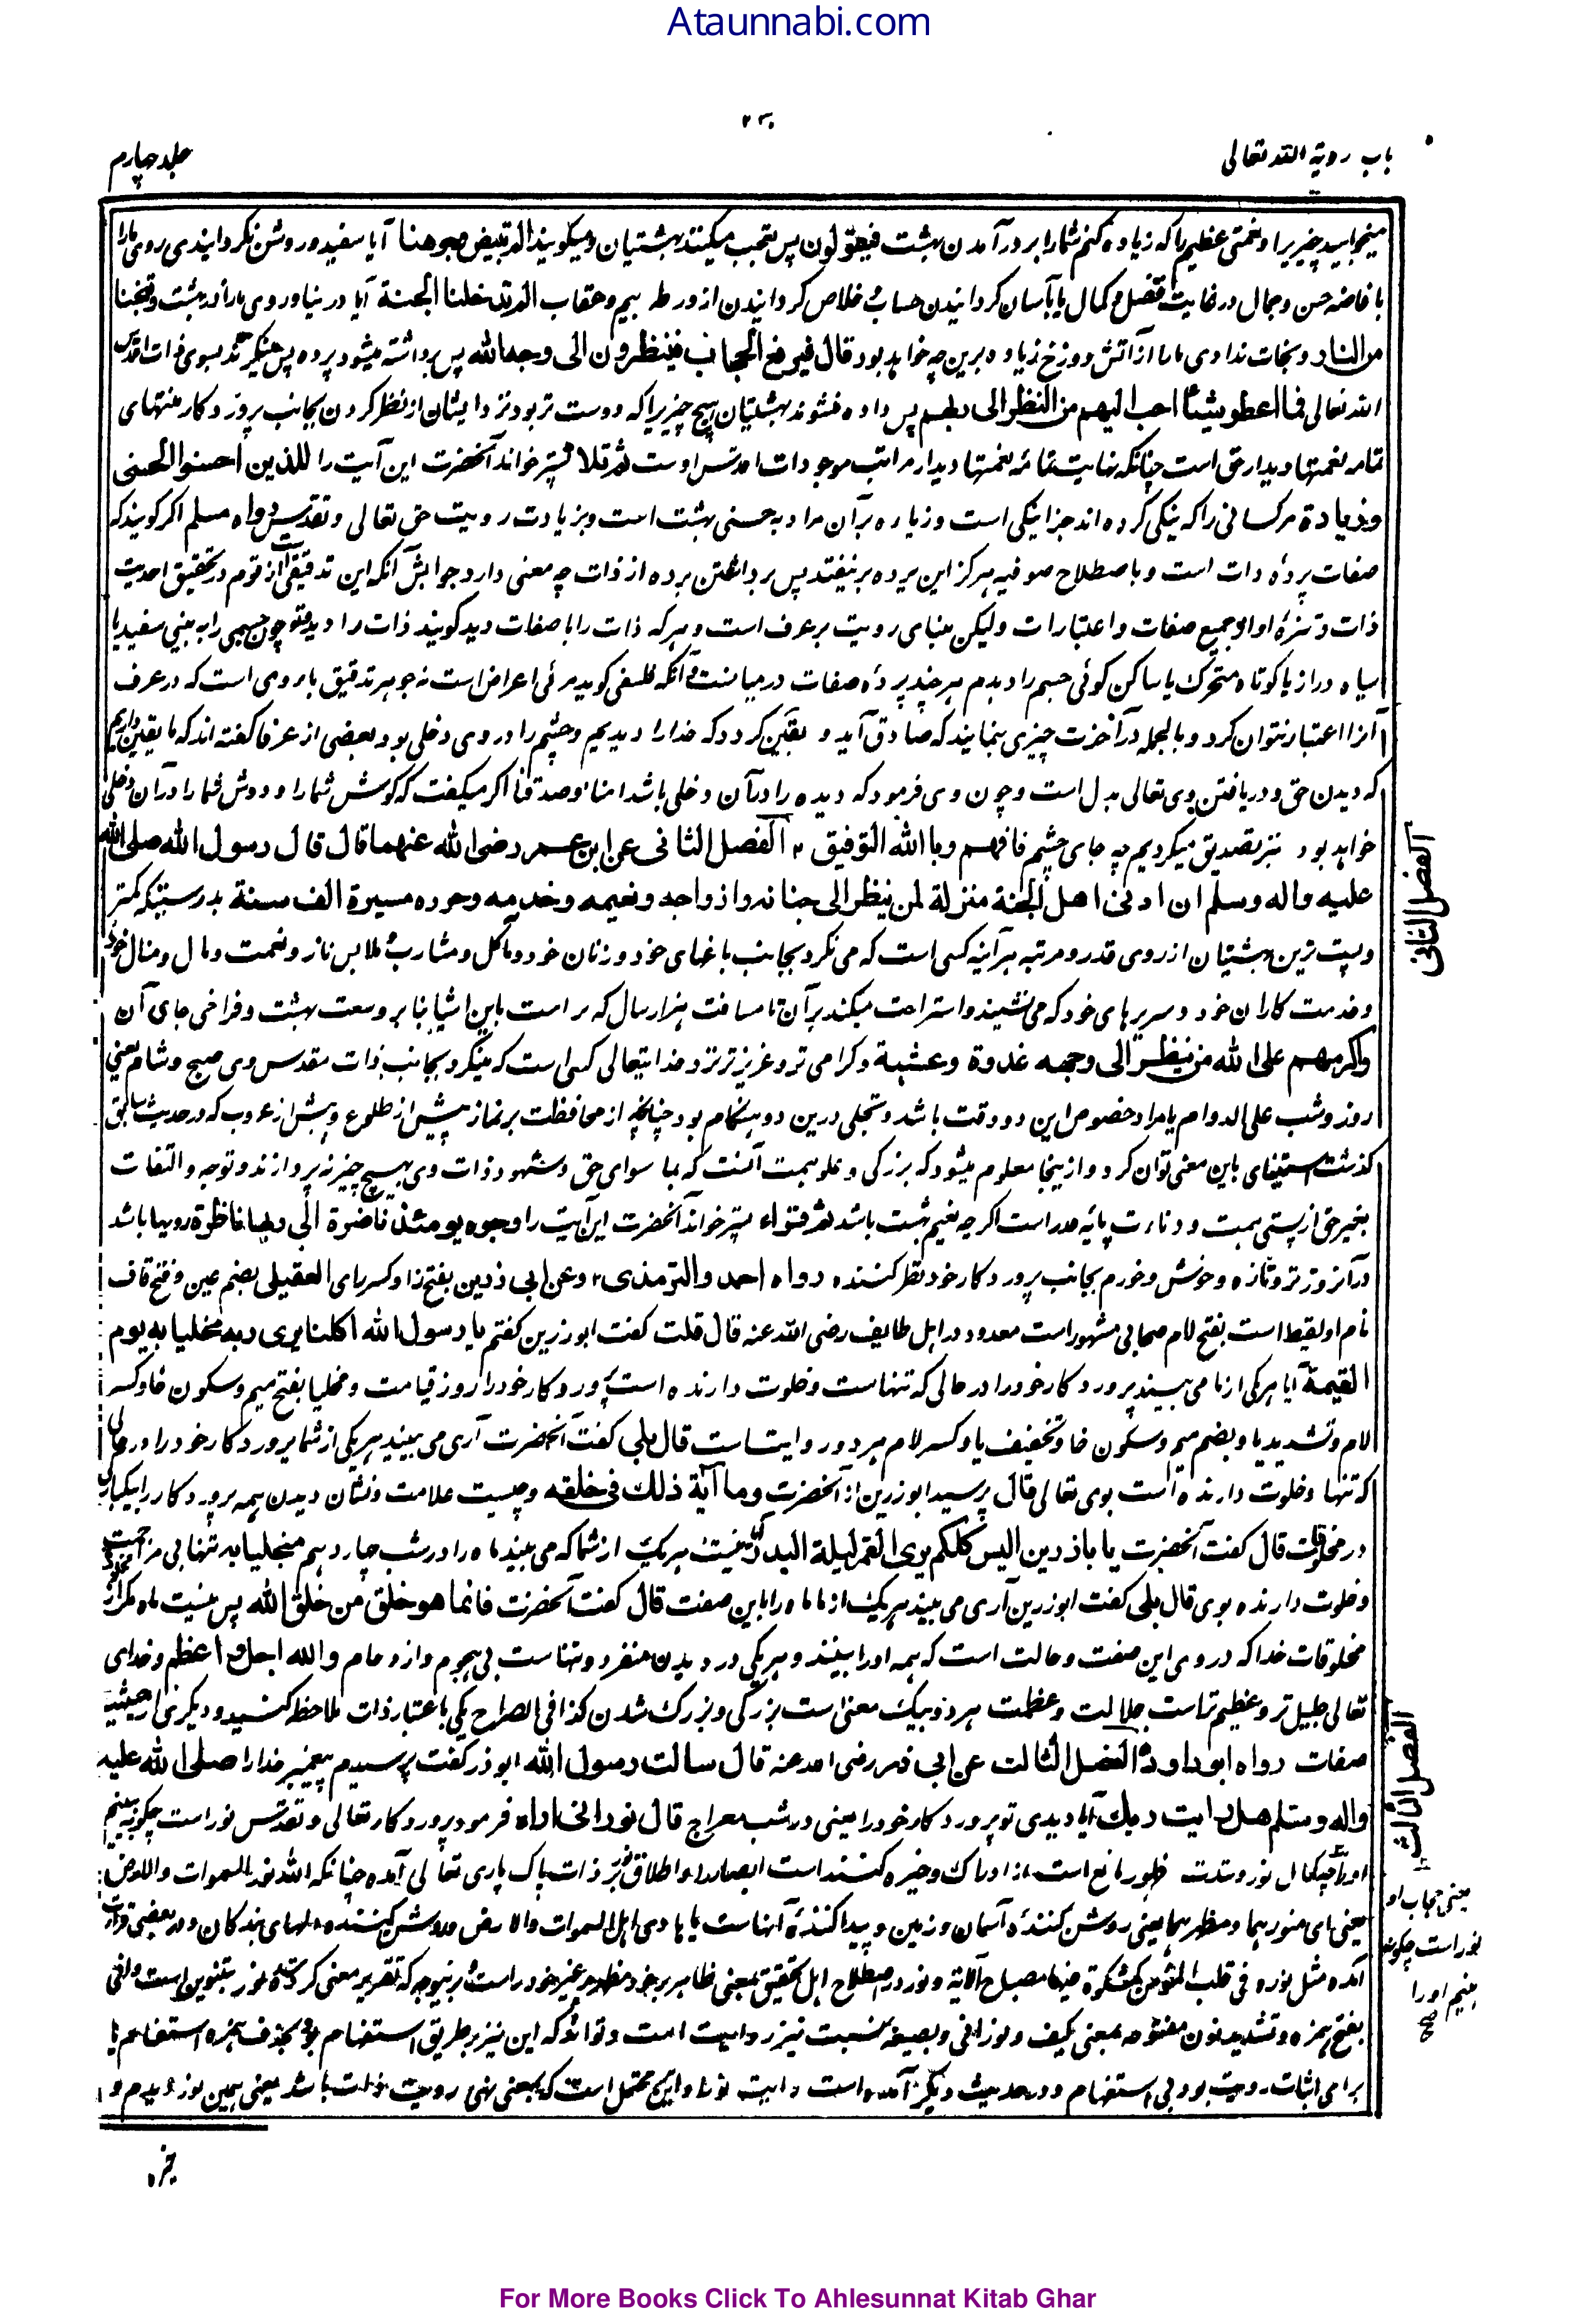 Ataunnabi.com
باب رویة الله تعالی
جلد چهارم
میخواهید چیزیرا و نعمتی عظیم را که زیاده کنم شمارا بر درآمدن بهشت فیقولون پس تعجب میکنند بهشتیان و میگویند الم تبیض وجوهنا آیا سفید و روشن نگردانیدی روی مارا
بافاضه حسن و جمال در غایت فضل و کمال یا بآسان گردانیدن حساب و خلاص گردانیدن از ورطه بیم و عقاب الم تدخلنا الجنة آیا در نیاوردی مارا در بهشت و تنجنا
من النار و نجات ندادی مارا از آتش دوزخ زیاده برین چه خواهد بود قال فیرفع الحجاب فینظرون الی وجه الله پس برداشته میشود پرده پس مینگرند بسوی ذات اقدس
الله تعالی فما اعطوا شیئا احب الیهم من النظر الی ربهم پس داده نشوند بهشتیان هیچ چیزیرا که دوست تر بود نزد ایشان از نظر کردن بجانب پروردگار منتهای
تمامه نعمتها دیدار حق است چنانکه نهایت تمامه نعمتها دیدار مراتب موجودات اقدس اوست ثم تلا پستر خواند آنحضرت این آیت را للذین احسنوا الحسنی
وزیادة مرکسانی را که نیکی کرده اند جزا نیکی است و زیاده بر آن مراد به حسنی بهشت است و بزیادت رویت حق تعالی و تقدس رواه مسلم اگر گویند که
صفات پردهٔ ذات است و باصطلاح صوفیه هرگز این پرده برنیفتد پس برداشتن پرده از ذات چه معنی دارد جوابش آنکه این تدقیقی است از قوم در تحقیق احدیت
ذات و تنزهٔ او از جمیع صفات و اعتبارات ولیکن بنای رویت بر عرف است و هر که ذات را با صفات دید گویند ذات را دید تو چون جسمی را به بینی سفید یا
سیاه دراز یا کوتاه متحرک یا ساکن گوئی جسم را دیدم هرچند پردهٔ صفات درمیانست و آنکه فلسفی گوید مرئی اعراض است نه جوهر تدقیق باردی است که در عرف
آنرا اعتبار نتوان کرد و بالجمله در آخرت چیزی بنمایند که صادق آید و یقین گردد که خدا را دیدیم و چشم را در وی دخلی بود و بعضی از عرفا گفته اند که ما یقین داریم
که دیدن حق و دریافتن وی تعالی بدل است و چون وی فرمود که دیده را در آن دخلی باشد امنا و صدقنا اگر میگفت که گوش شما را و دوش شما را در آن دخلی
خواهد بود نیز تصدیق میکردیم چه جای چشم فافهم و بالله التوفیق الفصل الثانی عن ابن عمر رضی الله عنهما قال قال رسول الله صلی الله
علیه واله وسلم ان ادنی اهل الجنة منزلة لمن ینظر الی جنانه وازواجه ونعیمه وخدمه وسرره مسیرة الف سنة بدرستیکه کمتر
و پست ترین بهشتیان از روی قدر و مرتبه هرآینه کسی است که می نگرد بجانب باغهای خود و زنان خود و مآکل و مشارب و ملابس ناز و نعمت و مال و منال خود
و خدمت کاران خود و سریرهای خود که می نشیند و استراحت میکند بر آن تا مسافت هزار سال که پر است باین اشیا بنابر وسعت بهشت و فراخی جای آن
واکرمهم علی الله من ینظر الی وجهه غدوة وعشیة و گرامی تر و عزیز تر نزد خدایتعالی کسی است که مینگرد بجانب ذات مقدس وی صبح و شام یعنی
روز و شب علی الدوام یا مراد خصوص این دو وقت باشد و تجلی درین دو هنگام بود چنانچه از محافظت بر نماز پیش از طلوع و پیش از غروب که در حدیث سابق
گذشت استیفای باین معنی توان کرد و از ینجا معلوم میشود که بزرگی و علو همت آنست که بما سوای حق و شهود ذات وی بهیچ چیز نپردازند و توجه و التفات
بغیر حق از پستی همت و دناءت پایه قدر است اگرچه نعیم بهشت باشد ثم قرأ پستر خواند آنحضرت این آیت را وجوه یومئذ ناضرة الی ربها ناظرة رویها باشد
در آنروز تر و تازه و خوش و خورم بجانب پروردگار خود نظر کننده رواه احمد والترمذی وعن ابی رزین بفتح زا و کسر رای العقیلی بضم عین و فتح قاف
نام او لقیط است بفتح لام صحابی مشهور است معدود در اهل طایف رضی الله عنه قال قلت گفت ابورزین گفتم یا رسول الله اکلنا یری ربه مخلیا به یوم
القیمة آیا هر یکی از ما می بیند پروردگار خود را در حالی که تنهاست و خلوت دارنده است پروردگار خود را روز قیامت و مخلیا بفتح میم و سکون خا و کسر
لام و تشدید یا و بضم میم و سکون خا و تخفیف یا و کسر لام هر دو روایت است قال بلی گفت آنحضرت آری می بیند هر یکی از شما پروردگار خود را در حالی
که تنها و خلوت دارنده است بوی تعالی قال پرسید ابورزین از آنحضرت وما آیة ذلک فی خلقه و چیست علامت و نشان دیدن همه پروردگار را بیکبارگی
در مخلوقات قال گفت آنحضرت یا ابا رزین الیس کلکم یری القمر لیلة البدر آیا نیست هر یک از شما که می بیند ماه را در شب چاردهم مخلیا به تنها بی مزاحمت
و خلوت دارنده بوی قال بلی گفت ابورزین آری می بیند هر یک از ما ماه را باین صفت قال گفت آنحضرت فانما هو خلق من خلق الله پس نیست ماه مگر از
مخلوقات خدا که در وی این صفت و حالت است که همه او را بینند و هر یکی در دیدن منفرد و تنها است بی هجوم و ازدحام والله اجل واعظم و خدای
تعالی جلیل تر و عظیم تر است جلالت و عظمت هر دو بیک معنی است بزرگی و بزرگ شدن کذا فی الصراح یکی باعتبار ذات ملاحظه کنید و دیگری از حیثیت
صفات رواه ابوداود الفصل الثالث عن ابی ذر رضی الله عنه قال سالت رسول الله ابوذر گفت پرسیدم پیغمبر خدا را صلی الله علیه
واله وسلم هل رایت ربک آیا دیدی تو پروردگار خود را یعنی در شب معراج قال نور انی اراه فرمود پروردگار تعالی و تقدس نور است چگونه بینم
او را چه کمال نور و شدت ظهور مانع است از ادراک و خیره کننده است ابصار را و اطلاق نور بر ذات پاک باری تعالی آمده چنانکه الله نور السموات والارض
یعنی ای منورهما و مظهرهما یعنی روشن کنندهٔ آسمان و زمین و پیدا کنندهٔ آنهاست یا هادی اهل السموات والارض و روشن کننده دلهای بندگان و در بعضی قرأت
آمده مثل نوره فی قلب المؤمن کمشکوة فیها مصباح الآیة و نور در اصطلاح اهل تحقیق بمعنی ظاهر بر خود و مظهر مر غیر خود را است برینوجه که تقریر معنی کرده شد نور بتنوین است و انی
بفتح همزه و تشدید نون مفتوحه بمعنی کیف و نورانی و بصیغه نسبت نیز روایت است و تواند که این نیز بر طریق استفهام بود بحذف همزه استفهام یا
برای اثبات رویت بود بی استفهام و در حدیث دیگر آمده است رایت نورا و این محتمل است که بمعنی نهی رویت ذات باشد یعنی همین نور دیدم و
الفصل الثانی
الفصل الثالث
یعنی حجاب او
نور است چگونه
بینم او را
For More Books Click To Ahlesunnat Kitab Ghar